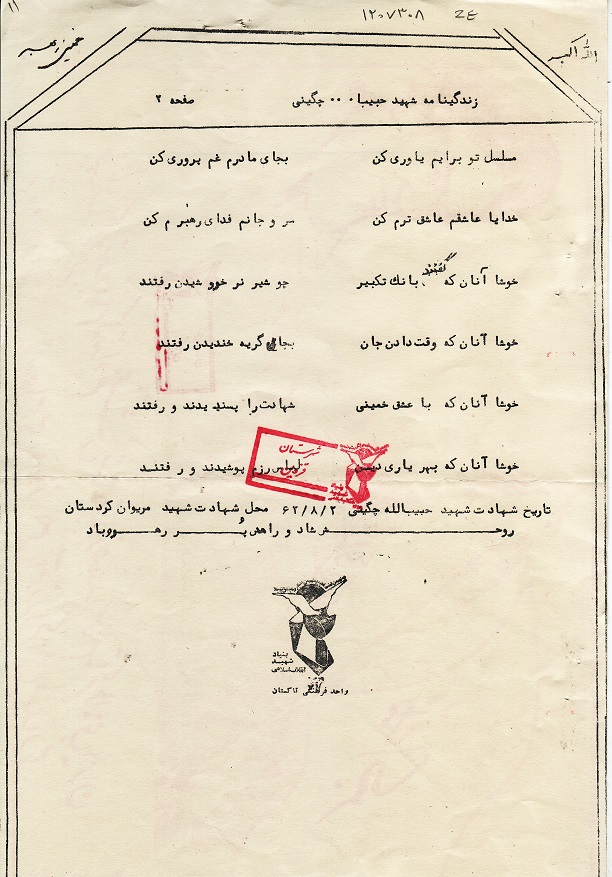 ۱۱
۱۲۰۷۳۰۸ ۲٤
الله اکبر
خمینی رهبر
زندگینامه شهید حبیبا۰۰۰ چگینی صفحه ۲
مسلسل تو برایم یاوری کن بجای مادرم غم پروری کن
خدایا عاشقم عاشق ترم کن سر و جانم فدای رهبرم کن
خوشا آنان که گفتند بانک تکبیر چو شیر نر خروشیدن رفتند
خوشا آنان که وقت دادن جان بجای گریه خندیدن رفتند
خوشا آنان که با عشق خمینی شهادت را پسندیدند و رفتند
خوشا آنان که بهر یاری لباس رزم پوشیدند و رفتند
شهرستان
قزوین
تاریخ شهادت شهید حبیبالله چگینی ۶۲/۸/۲ محل شهادت شهید مریوان کردستان
روحـــش شاد و راهش پُـــر رهـــرو باد
بنیاد
شهید
انقلاب اسلامی
واحد فرهنگی تاکستان